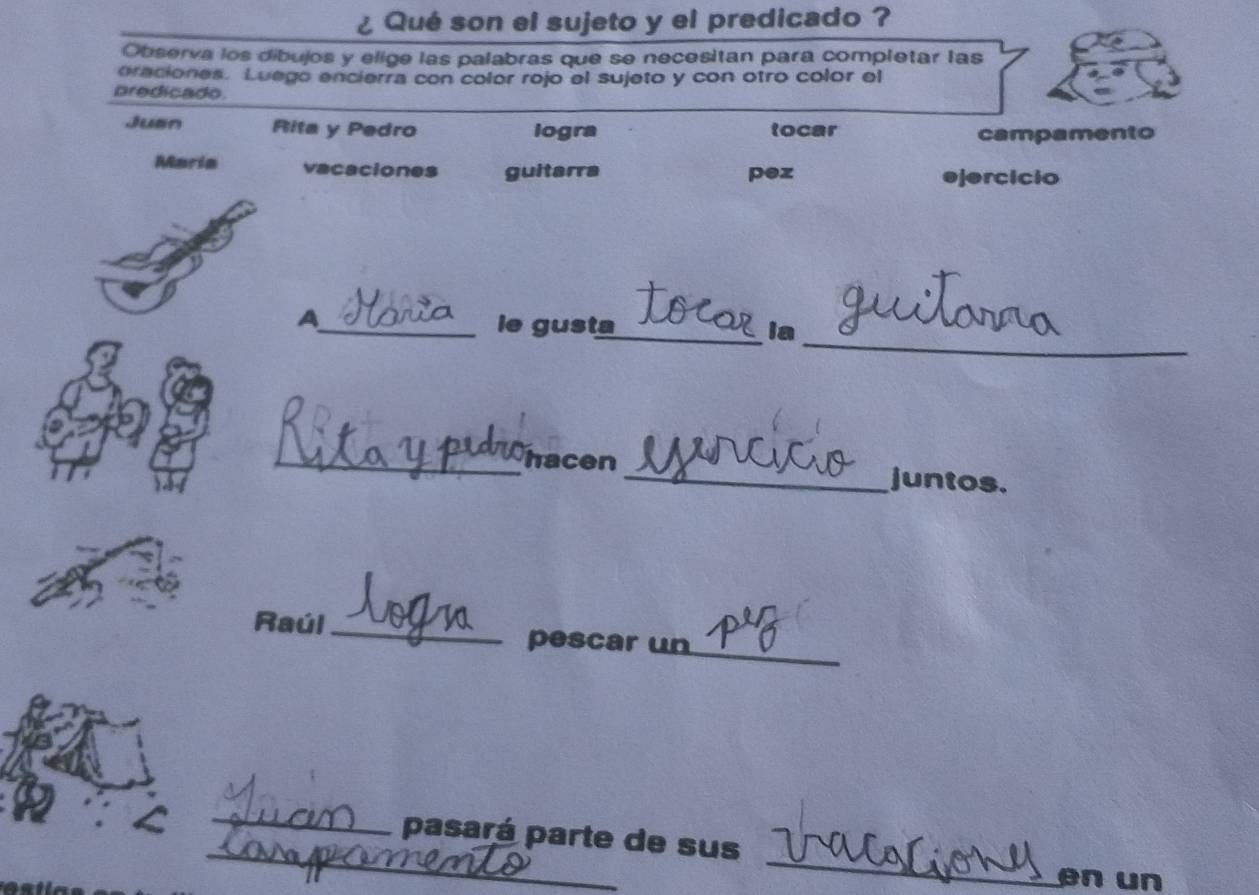 ¿ Qué son el sujeto y el predicado ?
Observa los dibujos y elige las palabras que se necesitan para completar las
oraciones. Luego encierra con color rojo el sujeto y con otro color el
predicado.
Juan Rita y Pedro logra tocar campamento
María vacaciones guitarra pez ejercicio
A María le gusta tocar la guitarra
Rita y pedro hacen ejercicio juntos.
Raúl logra pescar un pez
Juan pasará parte de sus vacaciones en un
campamento